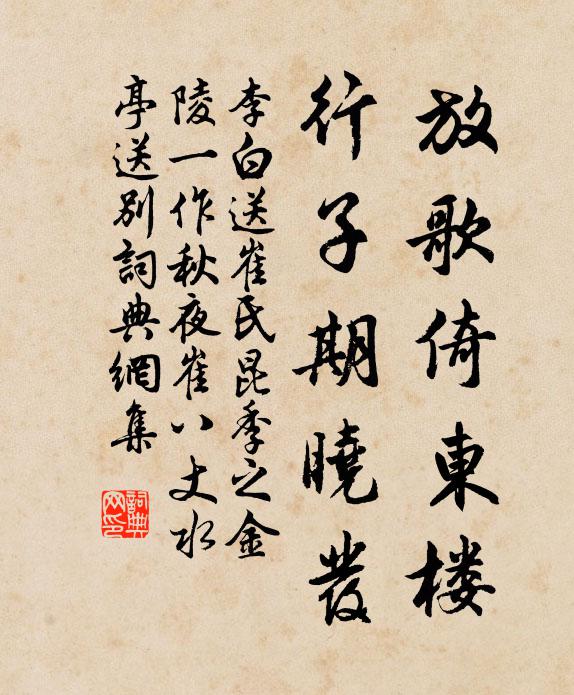 放歌倚東楼
行子期曉發
李白送崔氏昆季之金
陵一作秋夜崔八丈水
亭送別詞典網集
詞典网印